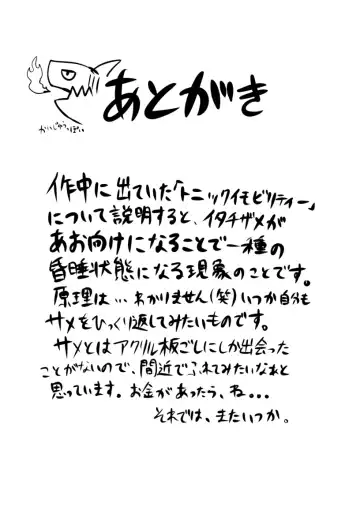 あとがき
かいじゅうっぽい
作中に出ていた「トニックイモビリティー」
について説明すると、イタチザメが
あお向けになることで一種の
昏睡状態になる現象のことです。
原理は…わかりません(笑)いつか自分も
サメをひっくり返してみたいものです。
サメとはアクリル板ごしにしか出会った
ことがないので、間近でふれてみたいなぁと
思っています。お金があったら、ね...
それでは、またいつか。